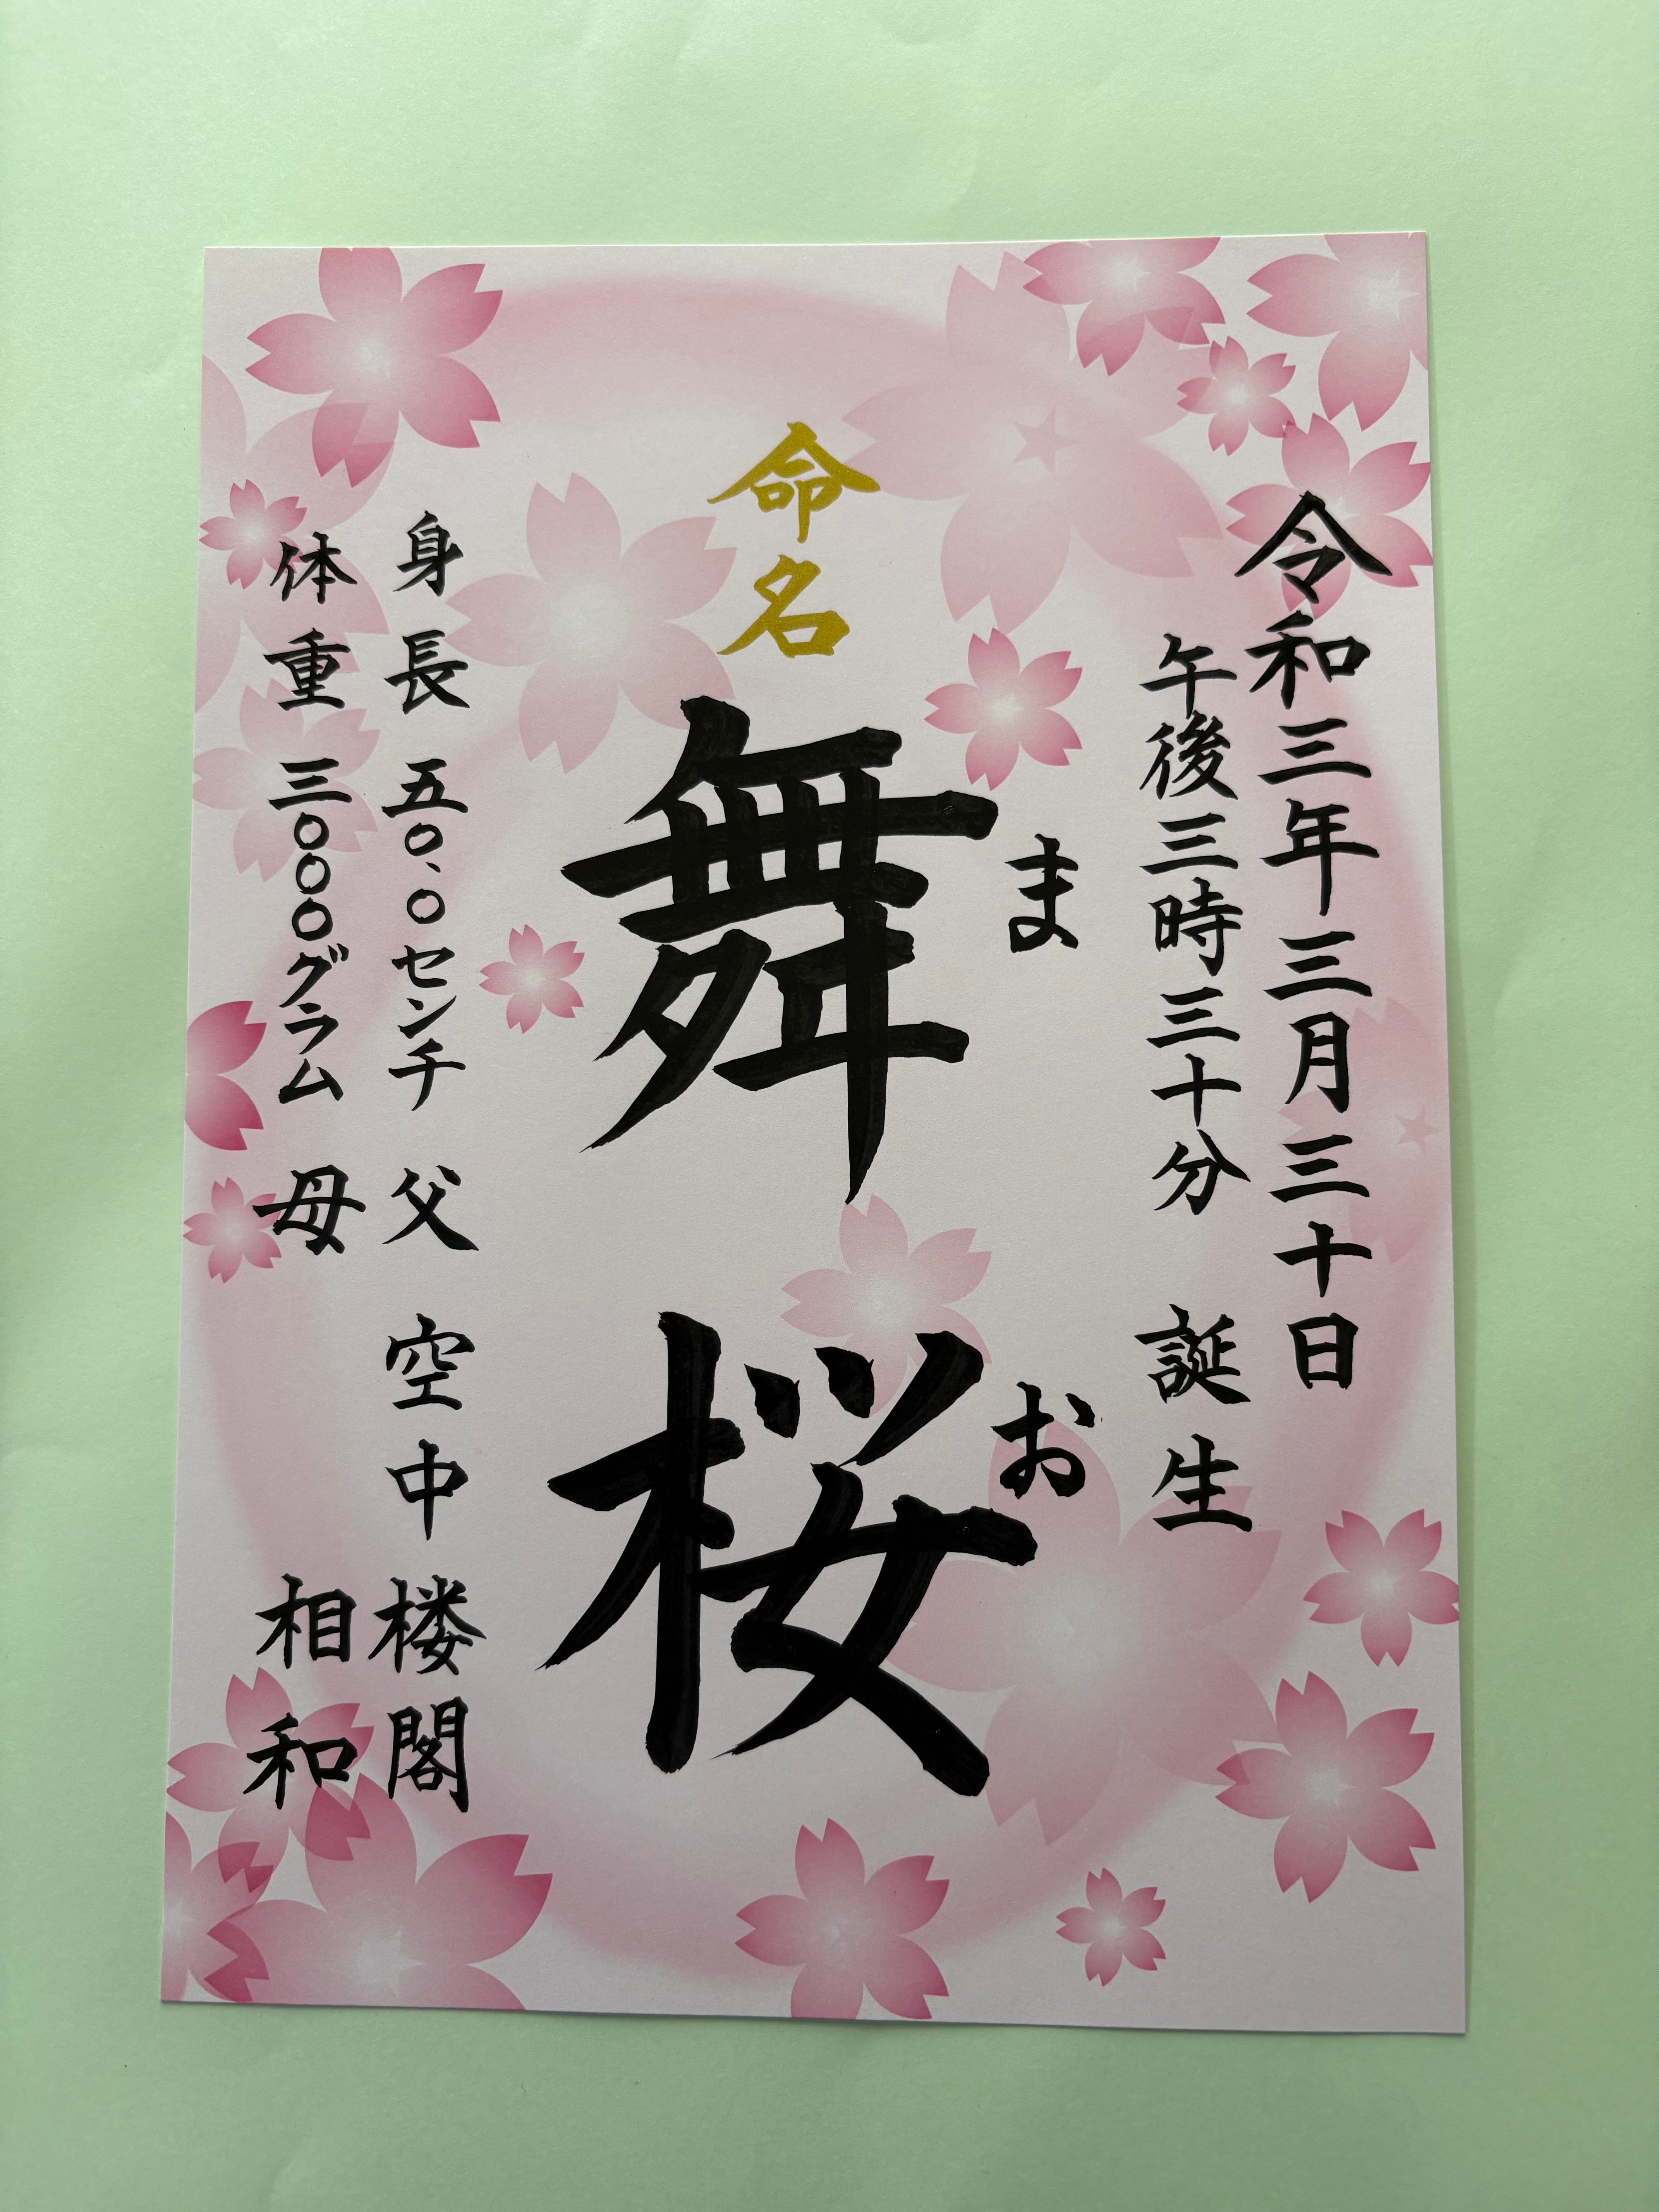 令和三年三月三十日
午後三時三十分 誕生
命名
舞桜
まお
身長 五〇、〇センチ 父 空中 楼閣
体重 三〇〇〇グラム 母 相和